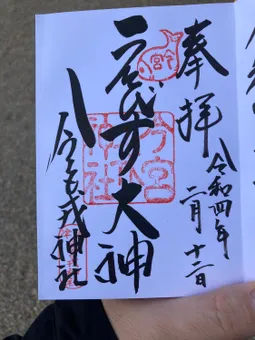 奉拝
令和四年
二月十二日
ゑびす大神
今宮
神社
今宮戎神社